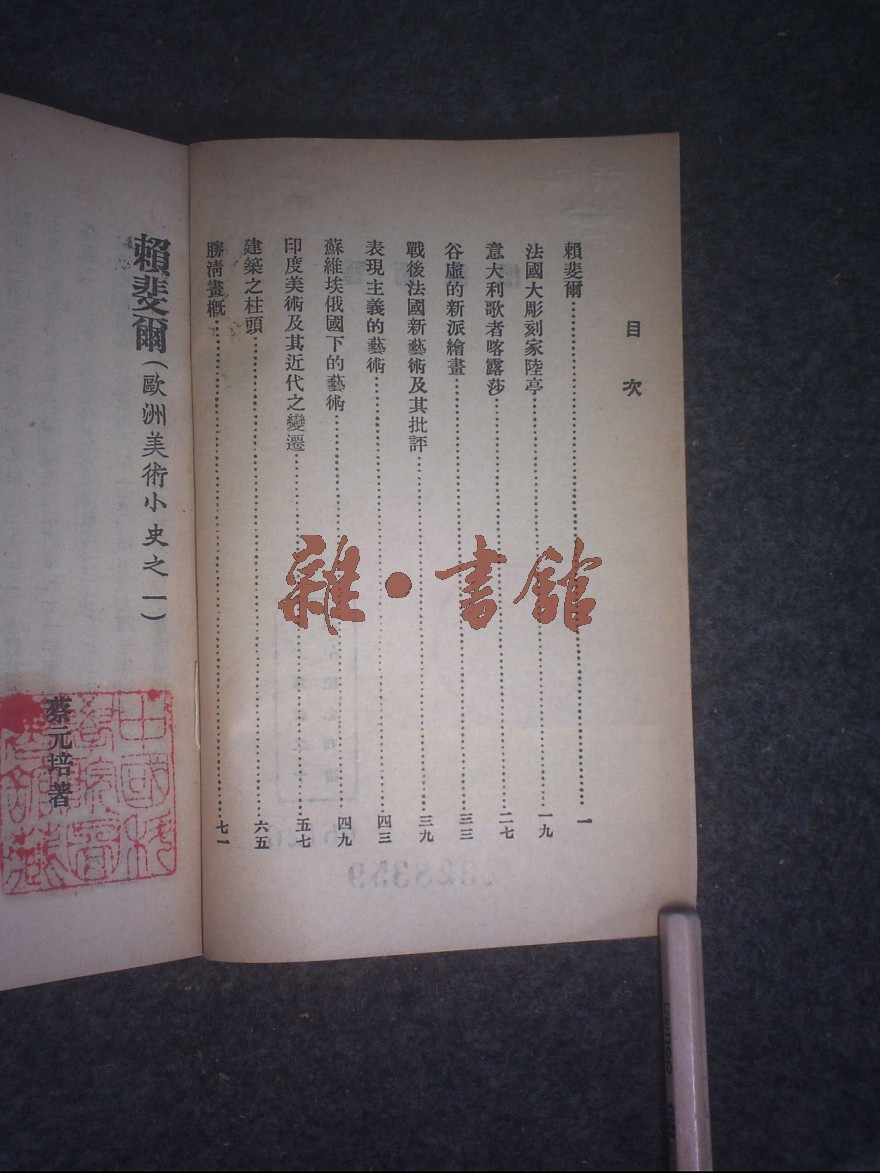 目次
賴斐爾⋯⋯⋯⋯⋯⋯⋯⋯⋯⋯一
法國大彫刻家陸亭⋯⋯⋯⋯⋯⋯⋯⋯一九
意大利歌者喀露莎⋯⋯⋯⋯⋯⋯⋯⋯二七
谷虛的新派繪畫⋯⋯⋯⋯⋯⋯⋯⋯三三
戰後法國新藝術及其批評⋯⋯⋯⋯⋯⋯⋯⋯三九
表現主義的藝術⋯⋯⋯⋯⋯⋯⋯⋯四三
蘇維埃俄國下的藝術⋯⋯⋯⋯⋯⋯⋯⋯四九
印度美術及其近代之變遷⋯⋯⋯⋯⋯⋯⋯⋯五七
建築之柱頭⋯⋯⋯⋯⋯⋯⋯⋯六五
勝清畫概⋯⋯⋯⋯⋯⋯⋯⋯七一
賴斐爾(歐洲美術小史之一)
蔡元培著
雜·書館